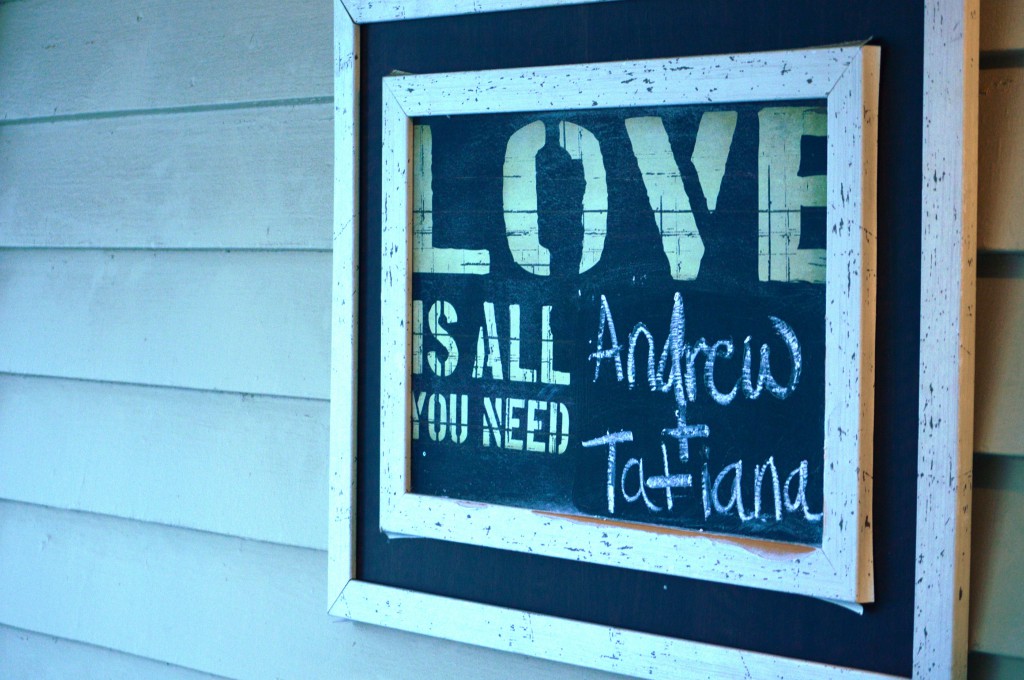 LOVE
IS ALL
YOU NEED
Andrew
+
Tatiana